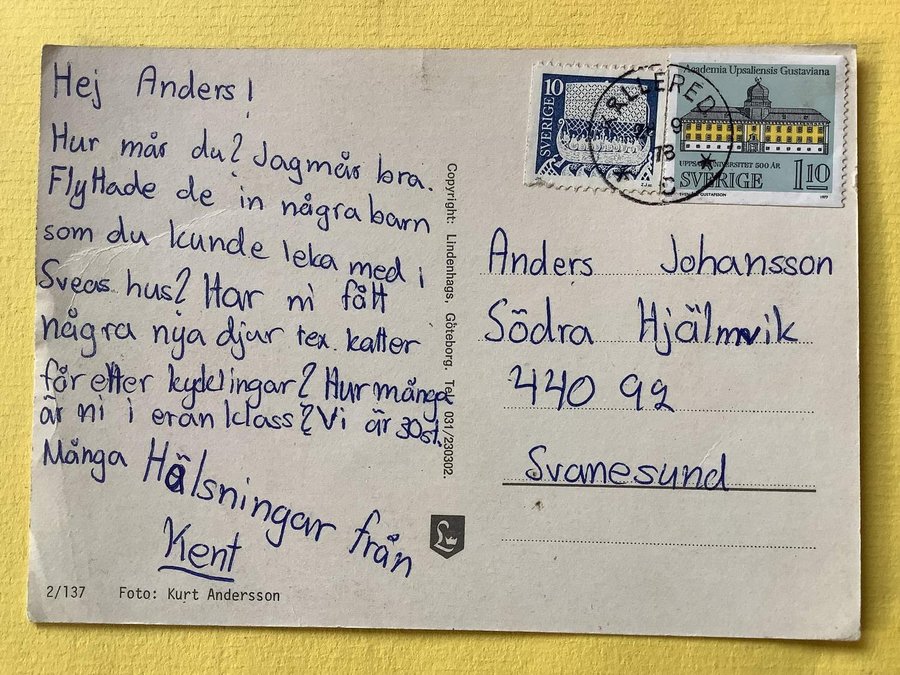 Hej Anders!
Hur mår du? Jag mår bra.
Flyttade de in några barn
som du kunde leka med i
Sveas hus? Har ni fått
några nya djur tex. katter
får etter kycklingar? Hur många
är ni i eran klass? Vi är 30st.
Många Hälsningar från
Kent
2/137 Foto: Kurt Andersson
Copyright: Lindenhags, Göteborg. Tel. 031/230302.
10
SVERIGE
RLLERED
9
78
C
Academia Upsaliensis Gustaviana
UPPSALA UNIVERSITET 500 ÅR
SVERIGE 1 10
1977
Anders Johansson
Södra Hjälmvik
440 92
Svanesund